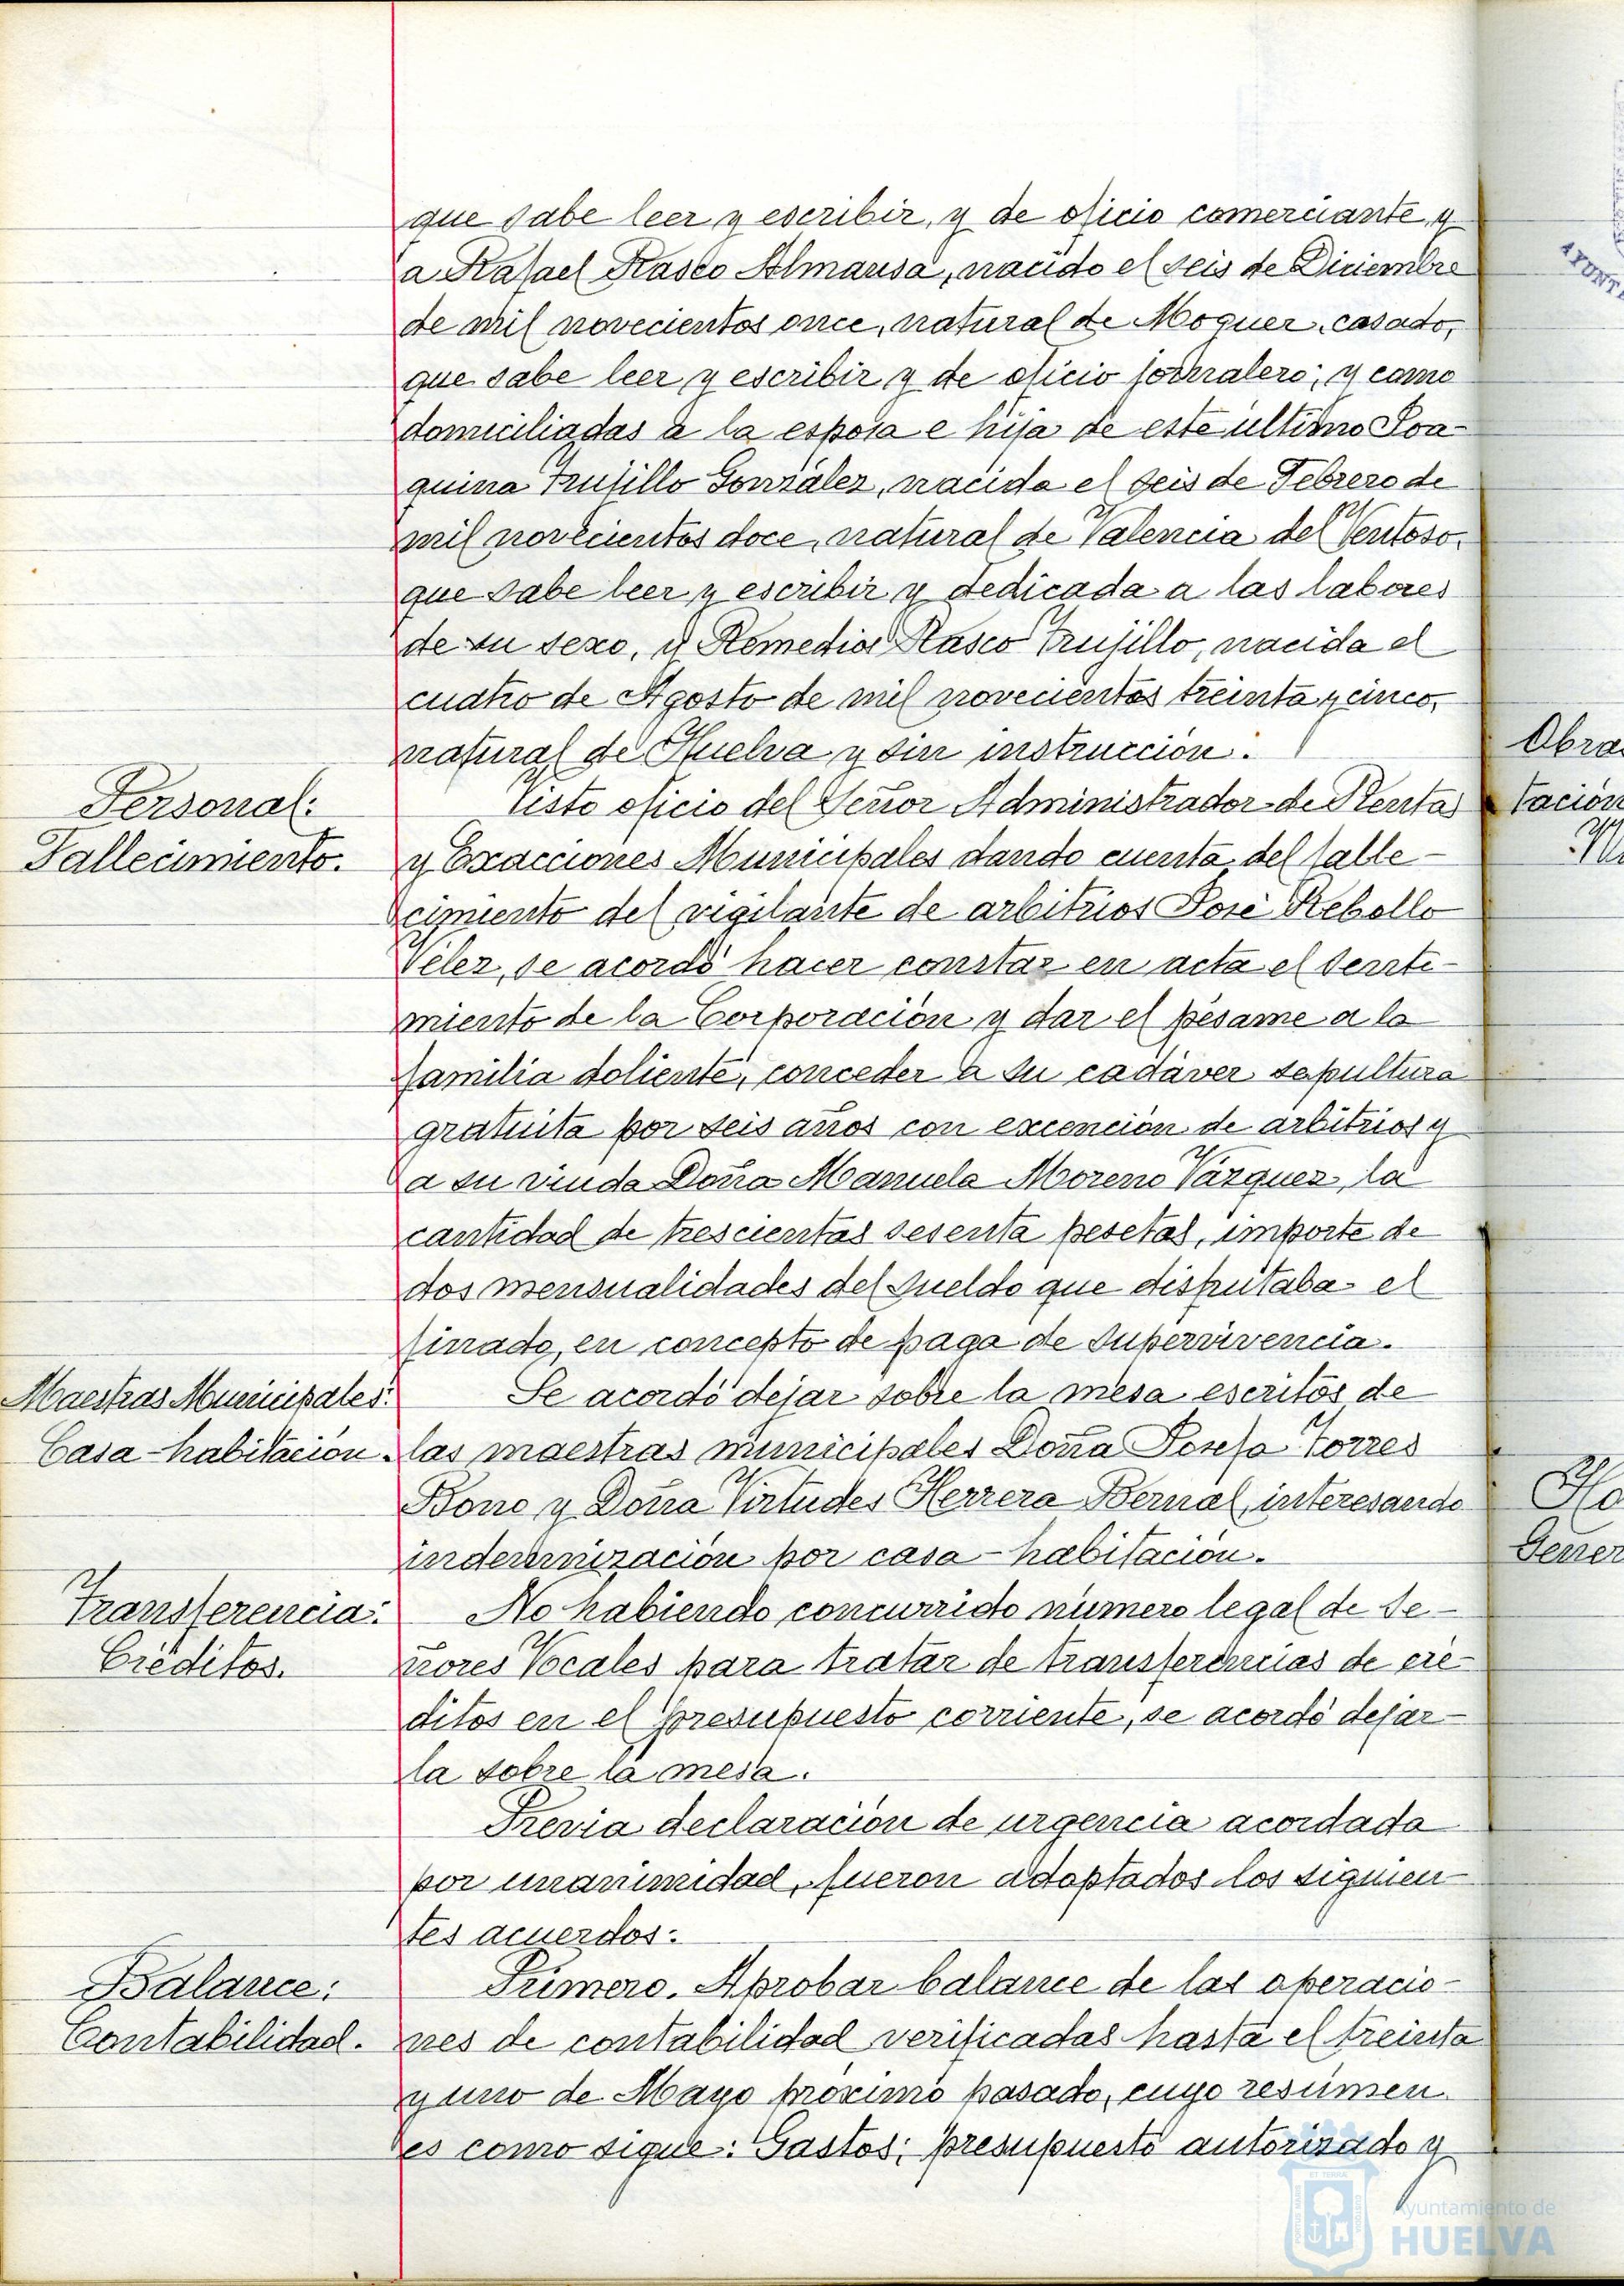 que sabe leer y escribir, y de oficio comerciante, y
a Rafael Rasco Almansa, nacido el seis de Diciembre
de mil novecientos once, natural de Moguer, casado,
que sabe leer y escribir y de oficio jornalero; y como
domiciliadas a la esposa e hija de este último Joa-
quina Trujillo González, nacida el seis de Febrero de
mil novecientos doce, natural de Valencia del Ventoso,
que sabe leer y escribir y dedicada a las labores
de su sexo, y Remedios Rasco Trujillo, nacida el
cuatro de Agosto de mil novecientos treinta y cinco,
natural de Huelva y sin instrucción.
Personal:
Fallecimiento.
Visto oficio del Señor Administrador de Rentas
y Exacciones Municipales dando cuenta del falle-
cimiento del vigilante de arbitrios José Rebollo
Vélez, se acordó hacer constar en acta el senti-
miento de la Corporación y dar el pésame a la
familia doliente, conceder a su cadáver sepultura
gratuita por seis años con excención de arbitrios y
a su viuda Doña Manuela Moreno Vázquez, la
cantidad de trescientas sesenta pesetas, importe de
dos mensualidades del sueldo que disfrutaba el
finado, en concepto de paga de supervivencia.
Maestras Municipales:
Casa-habitación.
Se acordó dejar sobre la mesa escritos de
las maestras municipales Doña Josefa Torres
Bono y Doña Virtudes Herrera Bernal, interesando
indemnización por casa-habitación.
Transferencia:
Créditos.
No habiendo concurrido número legal de Se-
ñores Vocales para tratar de transferencias de cré-
ditos en el presupuesto corriente, se acordó dejar-
la sobre la mesa.
Previa declaración de urgencia acordada
por unanimidad, fueron adoptados los siguien-
tes acuerdos:
Balance:
Contabilidad.
Primero. Aprobar balance de las operacio-
nes de contabilidad verificadas hasta el treinta
y uno de Mayo próximo pasado, cuyo resúmen
es como sigue: Gastos: presupuesto autorizado y
Obra
tación
Gener
Ayuntamiento de
HUELVA